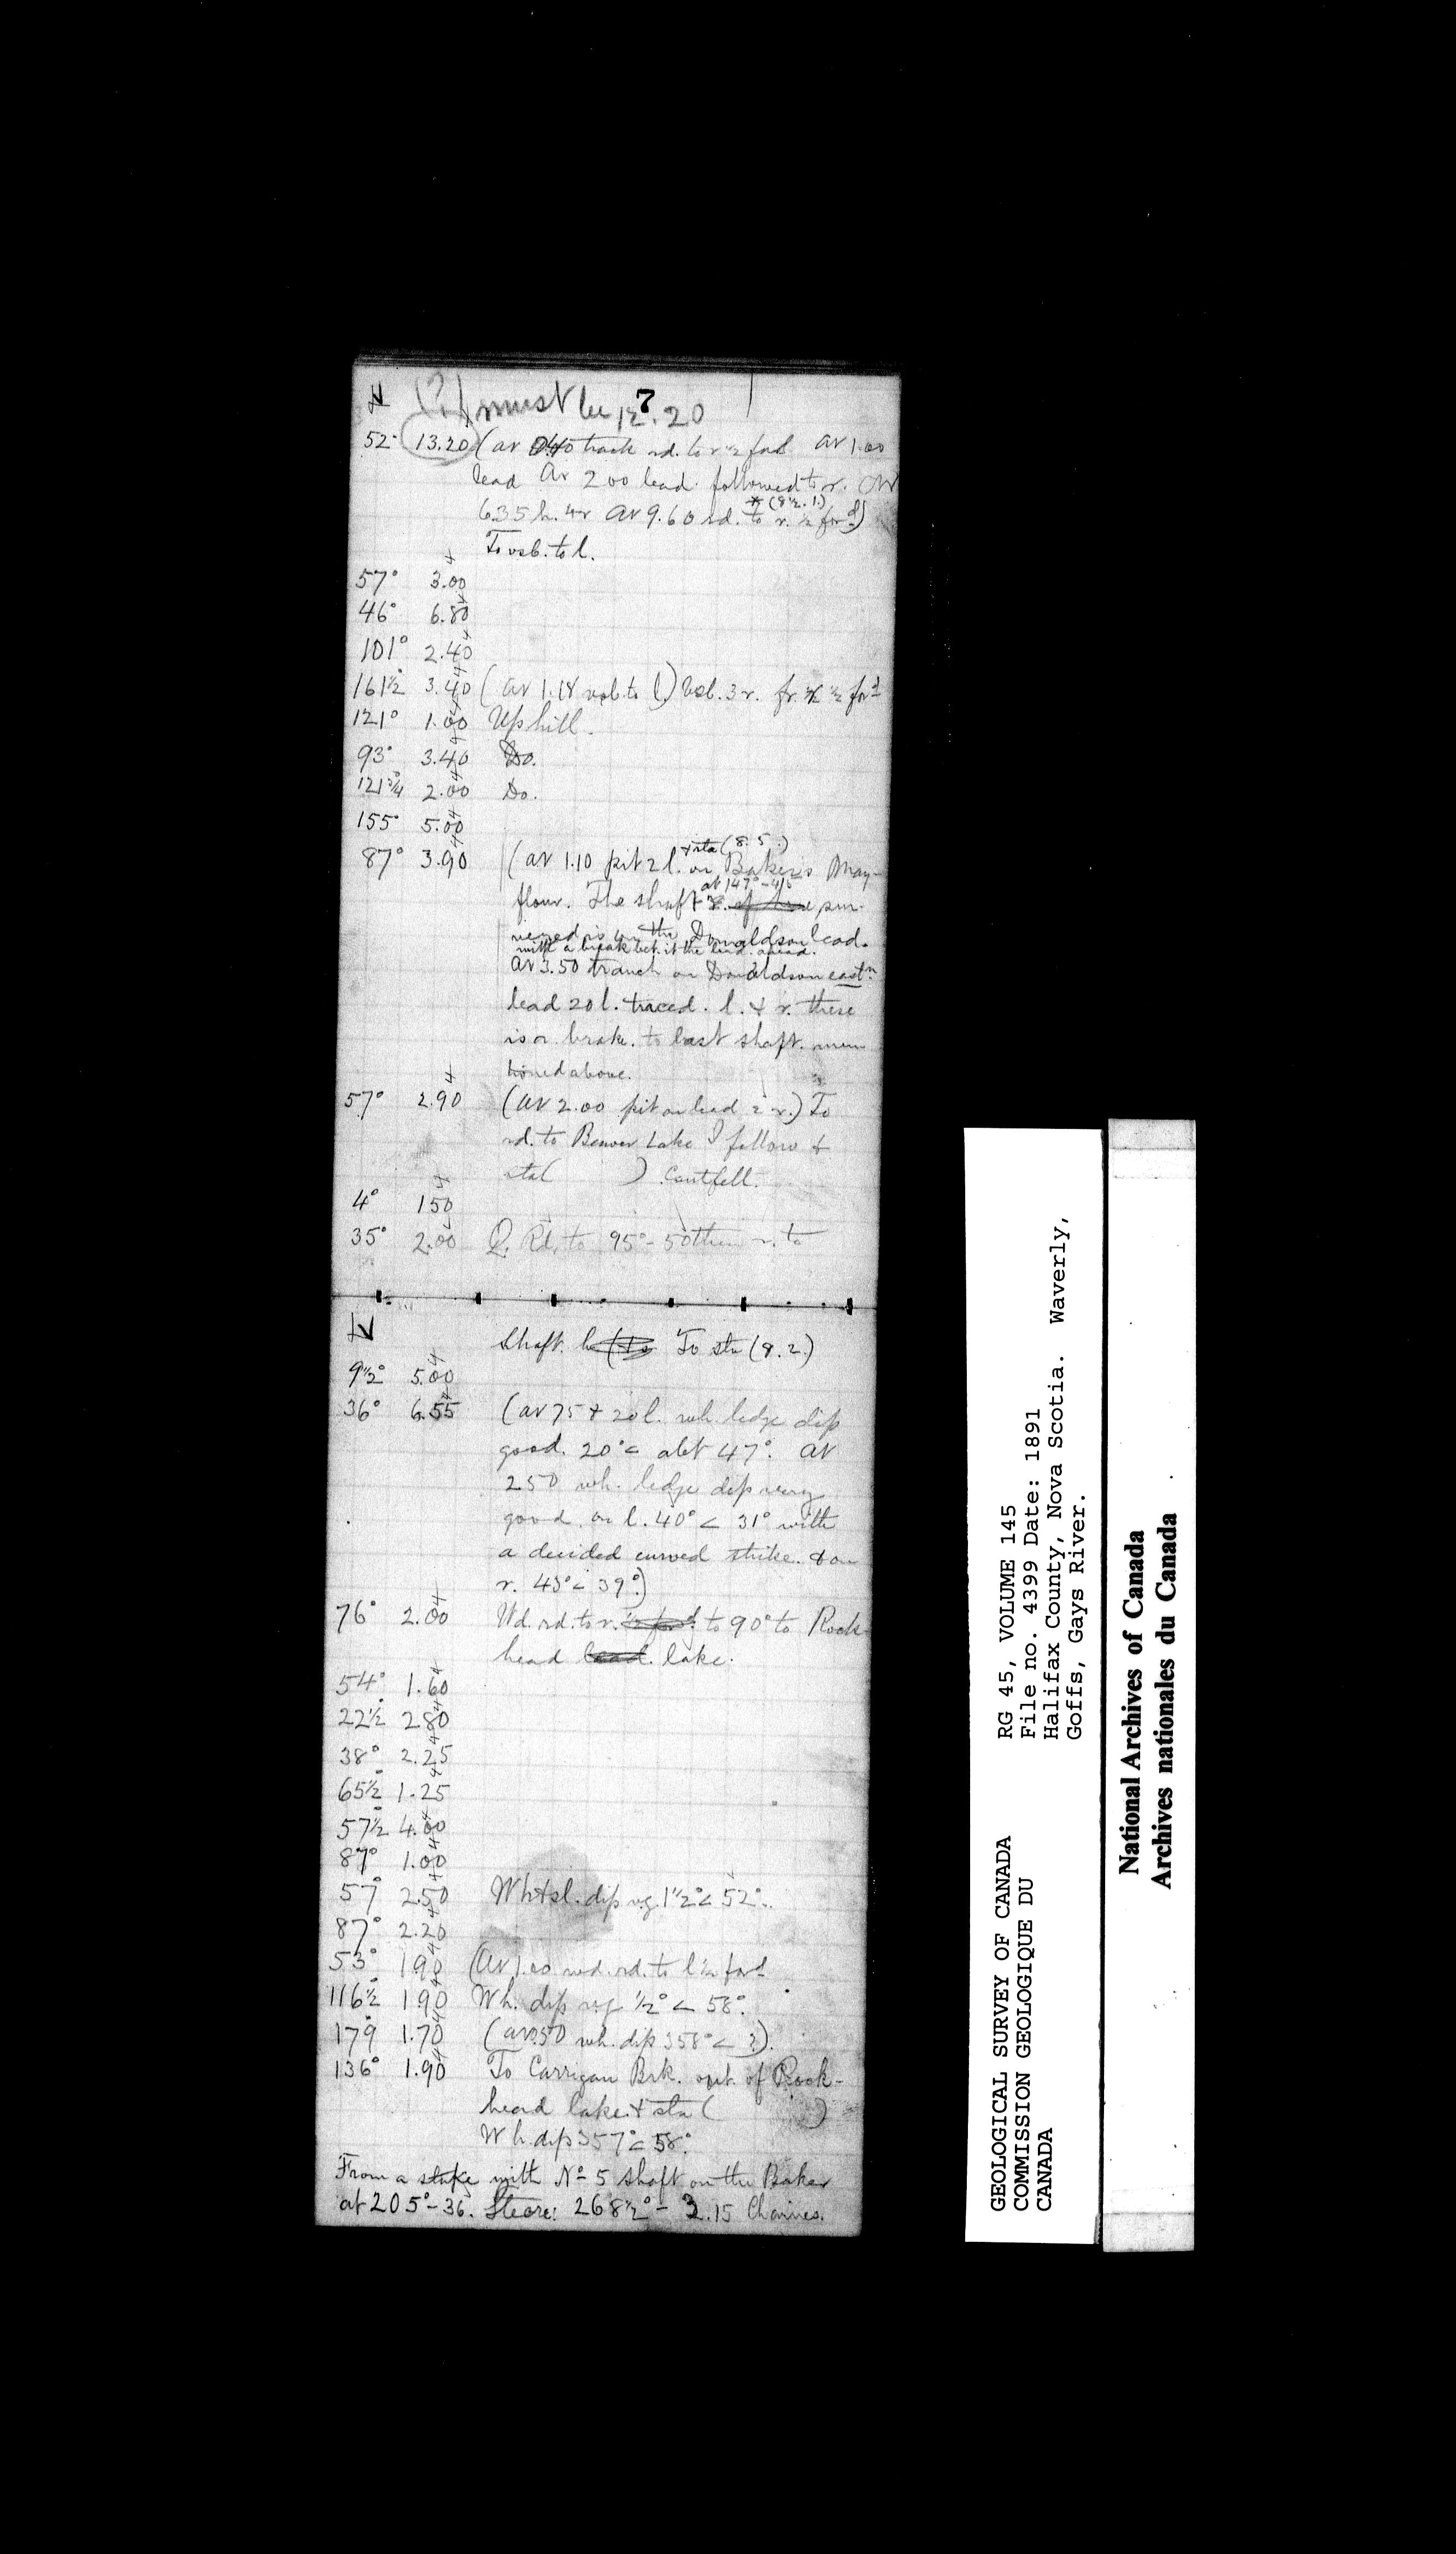 7
(?) must be 12.20
52° 13.20 (at 0.40 track rd. to r ½ ford at 1.00
lead At 200 lead followed to r. At
6.35 h. 4 r At 9.60 rd. to r. ½ for.d)
* (8½.1.)
To vsb. to l.
57° 3.00
46° 6.80
101° 2.40
161½° 3.40 (at 1.18 vsb. to l.) bsb. 3 r. fr. ½ ford
121° 1.00 Up hill.
93° 3.40 Do.
121¾° 2.00 Do.
155° 5.00
87° 3.90 (at 1.10 pit 2 l. on Baker's May-
+ sta (8.5.)
flour. The shaft r. sur-
at 147°-415
veyed is on the Donaldson lead.
with a break bet. it & the lead ahead.
At 3.50 trench on Donaldson eastn
lead 20 l. traced. l. & r. there
is a brake. to last shaft. men
tioned above.
57° 2.90 (at 2.00 pit on lead 2 r.) To
rd. to Beaver Lake I follow &
sta ( ) Cantfell.
4° 150
35° 2.00 Q. Rd. to 95°-50 then r. to
Shaft. To sta (8.2.)
9½° 5.00
36° 6.55 (at 75 + 20 l. wh. ledge dip
good. 20° < abt 47°. At
250 wh. ledge dip very
good on l. 40° < 31° with
a decided curved strike. & on
r. 43° < 39°.)
76° 2.00 Wd. rd. to r. to 90° to Rock-
head lake.
54° 1.60
22½° 280
38° 2.25
65½° 1.25
57½° 4.00
87° 1.00
57° 2.50 Wh & sl. dip vg. 1½° < 52°.
87° 2.20
53° 190 (At 1.00 wd. rd. to l ½ ford
116½° 190 Wh. dip vg ½° < 58°.
179° 1.70 (at .50 wh. dip 358° < ?).
136° 1.90 To Carrigan Brk. out of Rock-
head lake & sta ( )
Wh. dip 357° < 58°.
From a stake with No 5 shaft on the Baker
at 205°-36. Steore: 268½° - 3.15 Chaines.
GEOLOGICAL SURVEY OF CANADA
COMMISSION GEOLOGIQUE DU
CANADA
RG 45, VOLUME 145
File no. 4399 Date: 1891
Halifax County, Nova Scotia. Waverly,
Goffs, Gays River.
National Archives of Canada
Archives nationales du Canada